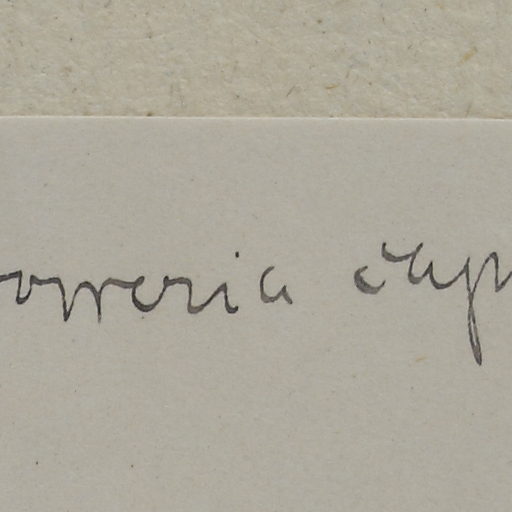 orreria cap